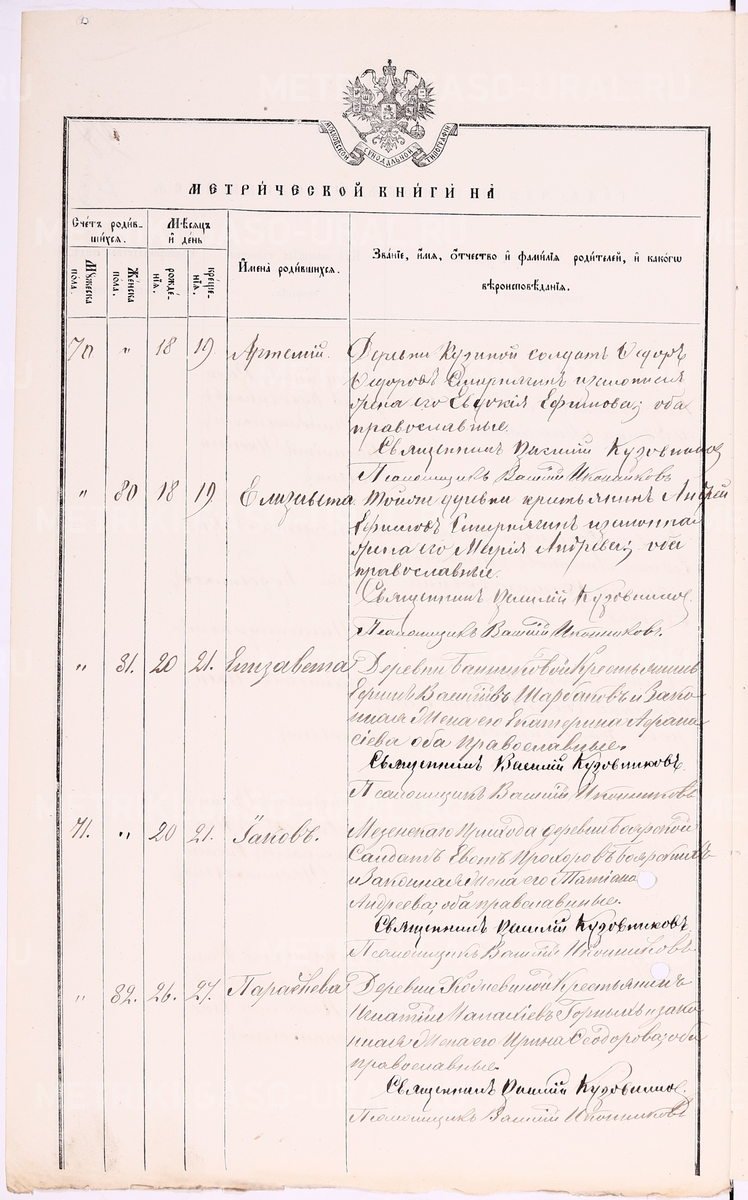 МОСКОВСКОЙ СѴНОДАЛЬНОЙ ТИПОГРАФІИ
МЕТРИ́ЧЕСКОЙ КНИ́ГИ НА̀
Сче́тъ роди́в-
шихся.
Мѣ́сяцъ
и҆ де́нь
Мꙋ́жеска
по́ла.
Же́нска
по́ла.
рожде́-
нїѧ.
креще́-
нїѧ.
И҆мена̀ роди́вшихсѧ.
Зва́нїе, и҆́мѧ, ѻ҆́тчество и҆ фами́лїѧ роди́телей, и҆ како́гѡ
вѣроисповѣ́данїѧ.
70 " 18 19 Артемій. Деревни Кузиной солдатъ Ѳедоръ
Ѳедоровъ Смирнягинъ и законная
жена его Евдокія Ефимова; оба
православные.
Священникъ Василій Кузовников
Псаломщикъ Василій Иконниковъ
" 80 18 19 Елизавета Тойже деревни крестьянинъ Андрей
Ефимовъ Смирнягинъ и законная
жена его Марія Андреева; оба
православные.
Священникъ Василій Кузовников
Псаломщикъ Василій Иконниковъ.
" 81. 20 21. Елизавета Деревни Крестьянинъ
Васильевъ и Зако-
нная Жена его Екатерина Афана-
сіева оба Православные.
Священникъ Василій Кузовниковъ.
Псаломщикъ Василій Иконниковъ
71. " 20 21. Іаковъ. Мезенскаго Прихода деревни Боярской
Салдатъ Прохоровъ Боярскихъ
и Законная Жена его Татіана
Андреева; оба православные.
Священникъ Василій Кузовниковъ.
Псаломщикъ Василій Иконниковъ
" 82. 26. 27. Параскева Деревни Крестьянинъ
Игнатій Горныхъ и зако-
нная Жена его Ирина Ѳеодорова; оба
православные.
Священникъ Василій Кузовников.
Псаломщикъ Василій Иконниковъ